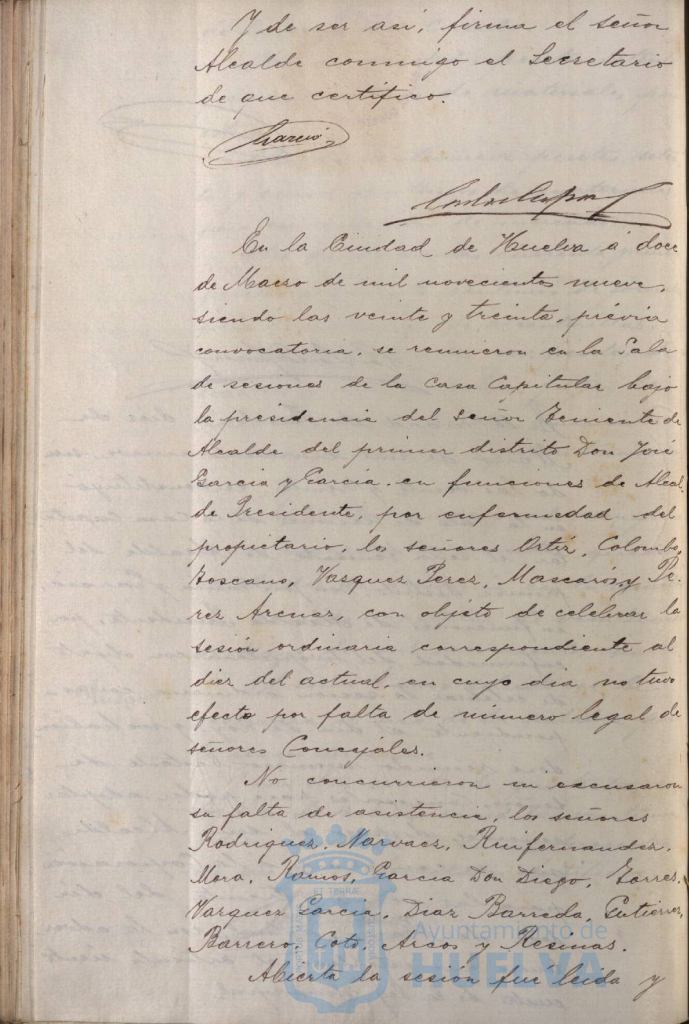 Y de ser así, firma el señor
Alcalde conmigo el Secretario
de que certifico.
García
En la Ciudad de Huelva á doce
de Marzo de mil novecientos nueve,
siendo las veinte y treinta, prévia
convocatoria, se reunieron en la Sala
de sesiones de la Casa Capitular bajo
la presidencia del Señor Teniente de
Alcalde del primer distrito Don José
García y García, en funciones de Alcal-
de Presidente, por enfermedad del
propietario, los señores Ortiz, Colombo,
Toscano, Vazquez Perez, Mascarós y Pe-
rez Arenas, con objeto de celebrar la
sesión ordinaria correspondiente al
diez del actual, en cuyo dia no tuvo
efecto por falta de número legal de
señores Concejales.
No concurrieron ni excusaron
su falta de asistencia, los señores
Rodriguez, Narvaez, Ruifernandez,
Mora, Ramos, Garcia Don Diego, Torres,
Vazquez Garcia, Diaz Barreda, Gutierrez,
Barrero, Coto, Arcos y Resinas.
Abierta la sesión fué leida y
Ayuntamiento de
HUELVA